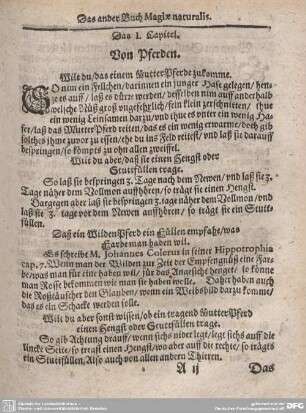 Das ander Buch Magiæ naturalis.
Das I. Capitel.
Von Pferden.
Wilt du/ das einem Mutter Pferde zukomme.
SO nim ein Fellchen/ darinnen ein junger Hase gelegen/ hen-
ge es auff/ laß es dürre werden/ desselben nim auff anderhalb
welsche Nüß groß ungefehrlich/ fein klein zerschnitten/ thue
ein wenig Leinsamen darzu/ und thue es unter ein wenig Ha-
fer/ laß das Mutter Pferd reiten/ das es ein wenig erwarme/ doch gib
solches ihme zuvor zu essen/ ehe du ins Feld reitest/ und laß sie darauff
bespringen/ so kömpts zu ohn allen zweiffel.
Wilt du aber/ daß sie einen Hengst oder
Stuttfüllen trage.
So laß sie bespringen 3. Tage nach dem Newen/ und laß sie 3.
Tage näher dem Vollmon auffhören/ so trägt sie einen Hengst.
Dargegen aber laß sie bespringen 3. tage näher dem Vollmon/ und
laß sie 3. tage vor dem Newen auffhören/ so trägt sie ein Stutt-
füllen.
Daß ein Wilden Pferd ein Füllen empfahe/ was
Farbe man haben wil.
Es schreibt M. Johannes Colerus in seiner Hippotrophia
cap. 7. Wenn man der Wilden zur Zeit der Empfengnüß eine Far-
be/ was man für eine haben wil/ für das Angesichte henget/ so könne
man Rosse bekommen wie man sie haben wolle. Daher haben auch
die Roßtäuscher den Glauben/ wenn ein Weibsbild darzu komme/
das es ein Schacke werden solle.
Wilt du aber sonst wissen/ ob ein tragend Mutter Pferd
einen Hengst oder Stuttfüllen trage.
So gib Achtung drauff/ wenn sichs niderleget/ legt sichs auff die
lincke Seite/ so treagt einen Hengst/ wo aber auff die rechte/ so trägts
ein Stuttfüllen. Also auch von allen andern Thieren.
A ij
Das